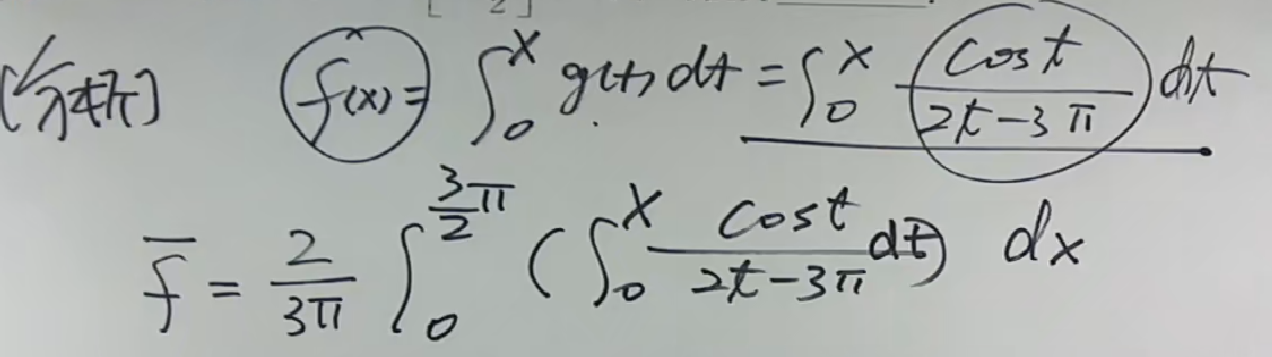 [分析] f(x) = ∫₀ˣ g(t) dt = ∫₀ˣ \frac{cos t}{2t-3π} dt
\overline{f} = \frac{2}{3π} ∫₀^{\frac{3}{2}π} (∫₀ˣ \frac{cos t}{2t-3π} dt) dx